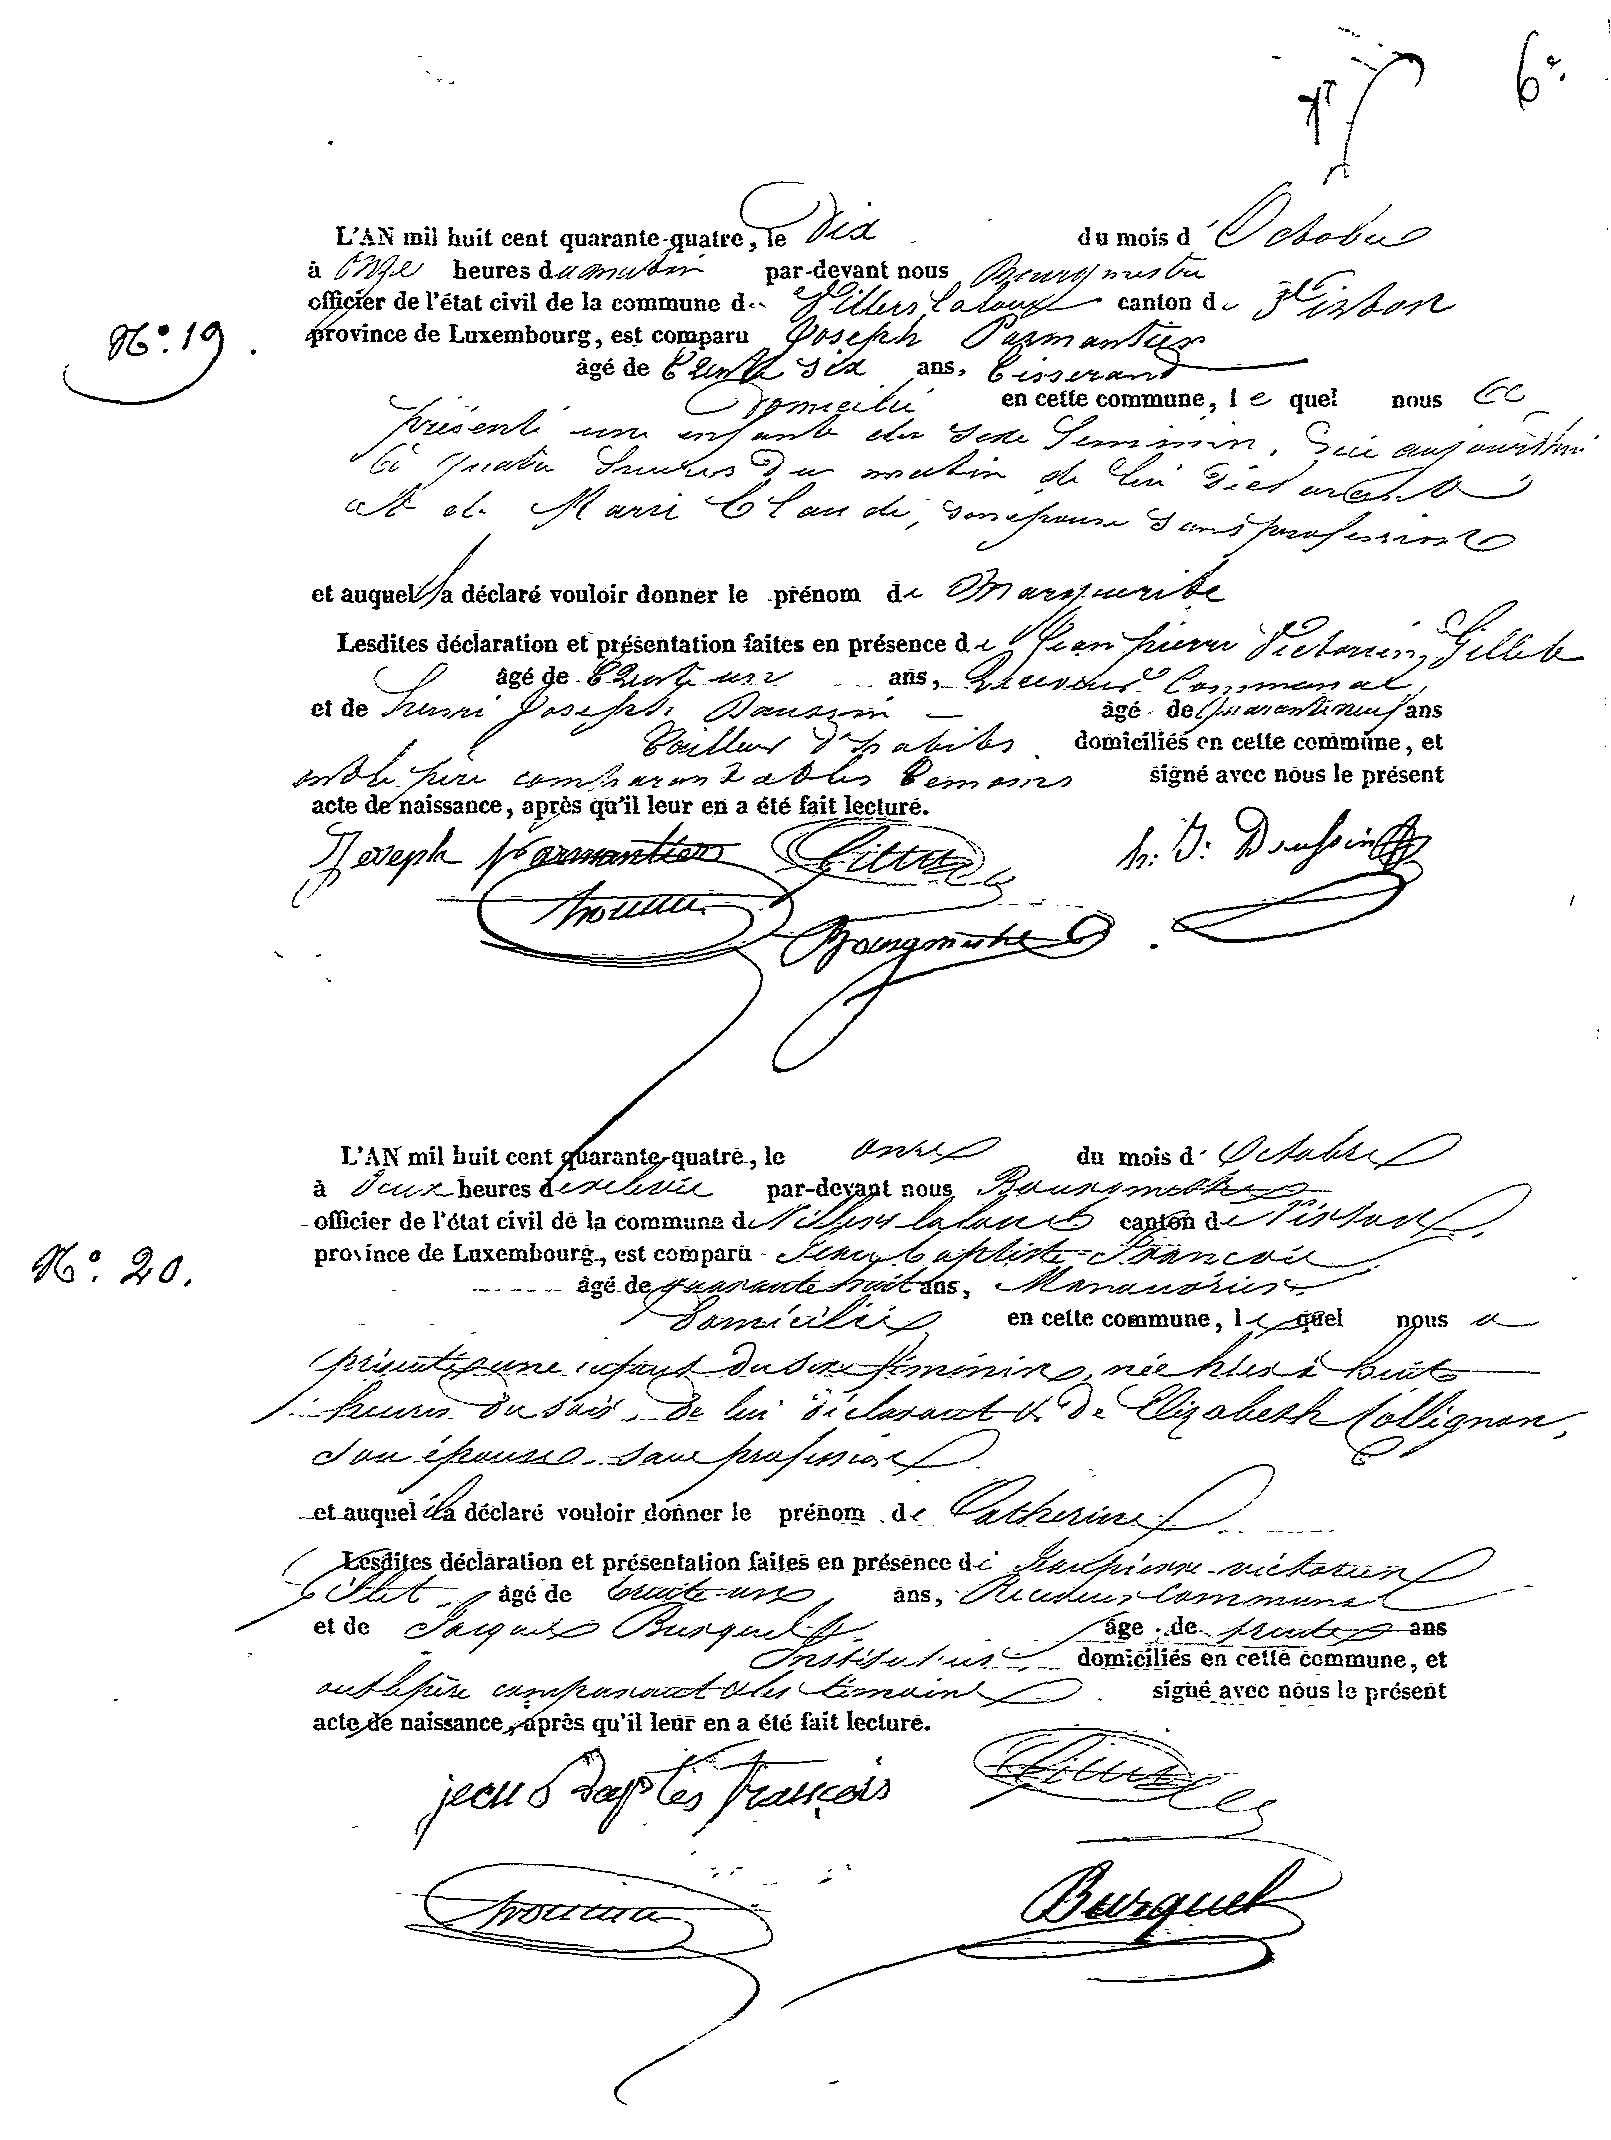 6e.
L'AN mil huit cent quarante-quatre, le Dix du mois d'Octobre
à Onze heures du matin par-devant nous Bourgmestre
officier de l'état civil de la commune de Villers laloux canton de Virton
N°. 19.
province de Luxembourg, est comparu Joseph Parmantier
âgé de trente six ans, tisserand
Domicilié en cette commune, le quel nous a
présenté une enfante du sexe feminin, née aujourdhui
à quatre heures du matin de lui déclarant
et de Marie Claude, son épouse sans profession
et auquel il a déclaré vouloir donner le prénom de Marguerite
Lesdites déclaration et présentation faites en présence de Jean pierre Victorien Gillet
âgé de trente un ans, Receveur Communal,
et de henri Joseph Daussin âgé de quarante neuf ans
tailleur d'habits domiciliés en cette commune, et
ont le père comparant et les temoins signé avec nous le présent
acte de naissance, après qu'il leur en a été fait lecture.
Joseph Parmantier h. J. Daussin
Bourgmestre
L'AN mil huit cent quarante-quatre, le onze du mois d'Octobre
à deux heures de relevée par-devant nous Bourgmestre
officier de l'état civil de la commune de Villers laloux canton de Virton
N°. 20.
province de Luxembourg, est comparu Jean baptiste François
âgé de quarante huit ans, Manouvrier
Domicilié en cette commune, le quel nous a
présenté une enfant du sexe féminin, née hier à huit
heures du soir, de lui déclarant & de Elizabeth Collignon,
son épouse sans profession
et auquel il a déclaré vouloir donner le prénom de Catherine
Lesdites déclaration et présentation faites en présence de Jean pierre victorien
Gillet âgé de trente un ans, Receveur Communal
et de Jacques Burquel âgé de trente ans
Instituteur domiciliés en cette commune, et
ont le père comparant & les temoins signé avec nous le présent
acte de naissance, après qu'il leur en a été fait lecture.
jean Baptiste françois
Burquel